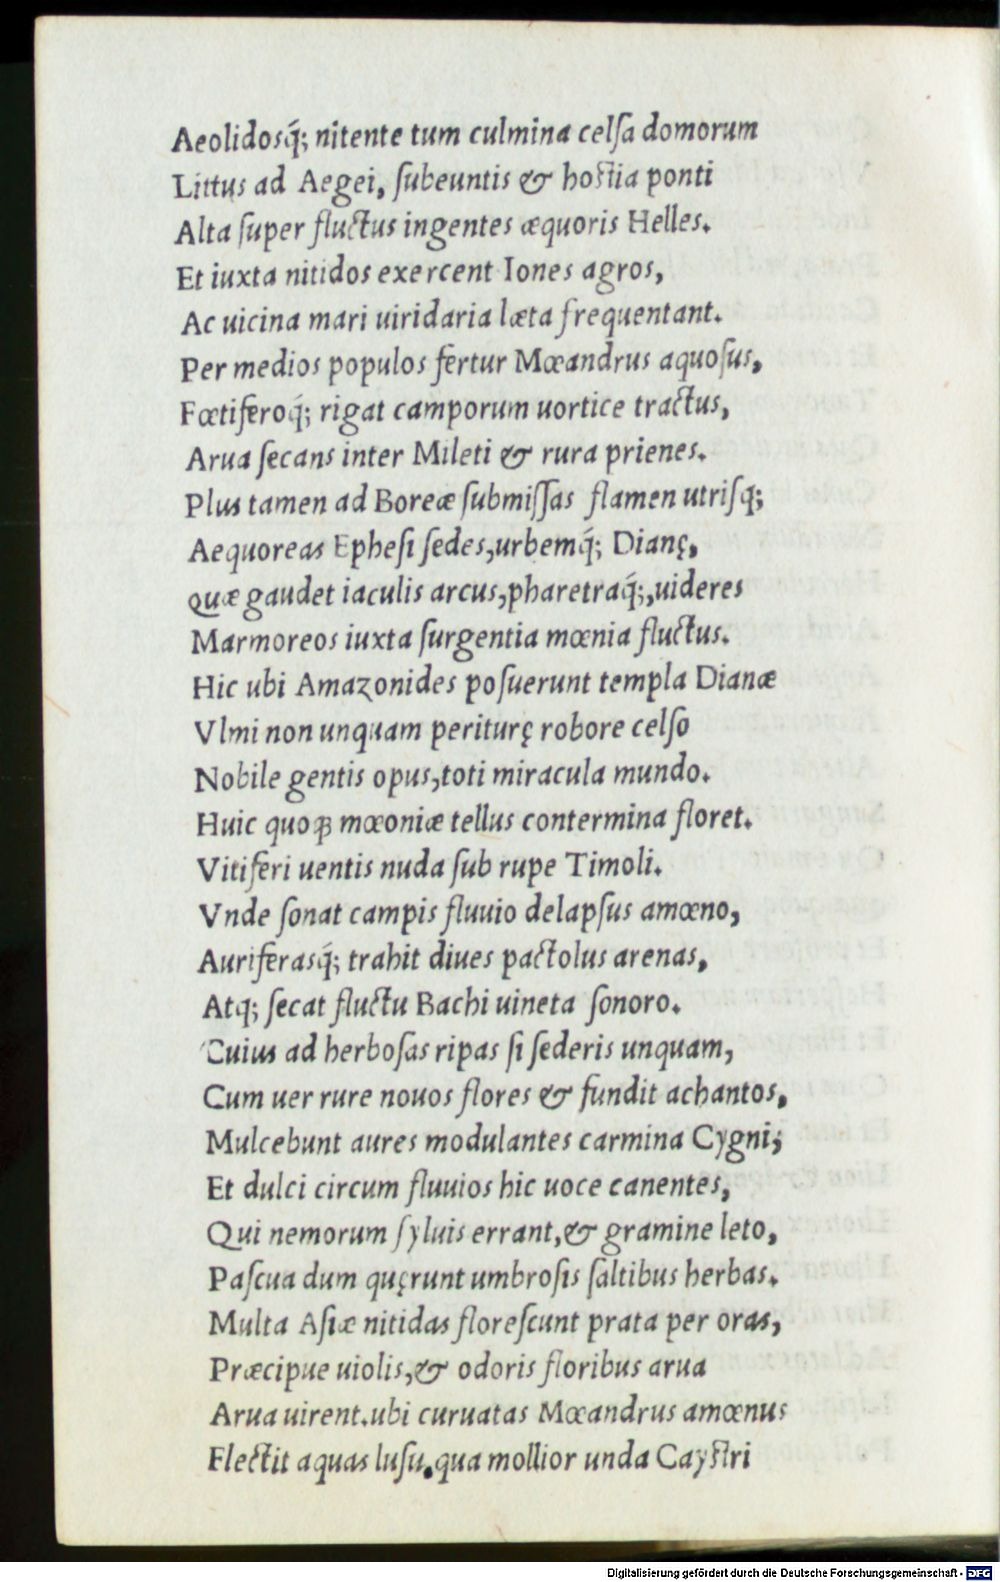 Aeolidosq́; nitente tum culmina celſa domorum
Littus ad Aegei, ſubeuntis & hoſtia ponti
Alta ſuper fluctus ingentes æquoris Helles.
Et iuxta nitidos exercent Iones agros,
Ac uicina mari uiridaria læta frequentant.
Per medios populos fertur Mœandrus aquoſus,
Fœtiferoq́; rigat camporum uortice tractus,
Arua ſecans inter Mileti & rura prienes.
Plus tamen ad Boreæ ſubmiſſas flamen utriſq;
Aequoreas Epheſi ſedes,urbemq́; Dianę,
quæ gaudet iaculis arcus,pharetraq́;,uideres
Marmoreos iuxta ſurgentia mœnia fluctus.
Hic ubi Amazonides poſuerunt templa Dianæ
Vlmi non unquam periturę robore celſo
Nobile gentis opus,toti miracula mundo.
Huic quoqꝫ mœoniæ tellus contermina floret.
Vitiferi uentis nuda ſub rupe Timoli.
Vnde ſonat campis fluuio delapſus amœno,
Auriferasq́; trahit diues pactolus arenas,
Atq; ſecat fluctu Bachi uineta ſonoro.
Cuius ad herboſas ripas ſi ſederis unquam,
Cum uer rure nouos flores & fundit achantos,
Mulcebunt aures modulantes carmina Cygni;
Et dulci circum fluuios hic uoce canentes,
Qui nemorum ſyluis errant,& gramine leto,
Paſcua dum quęrunt umbroſis ſaltibus herbas.
Multa Aſiæ nitidas floreſcunt prata per oras,
Præcipue uiolis,& odoris floribus arua
Arua uirent.ubi curuatas Mœandrus amœnus
Flectit aquas luſu.qua mollior unda Cayſtri
Digitalisierung gefördert durch die Deutsche Forschungsgemeinschaft - DFG